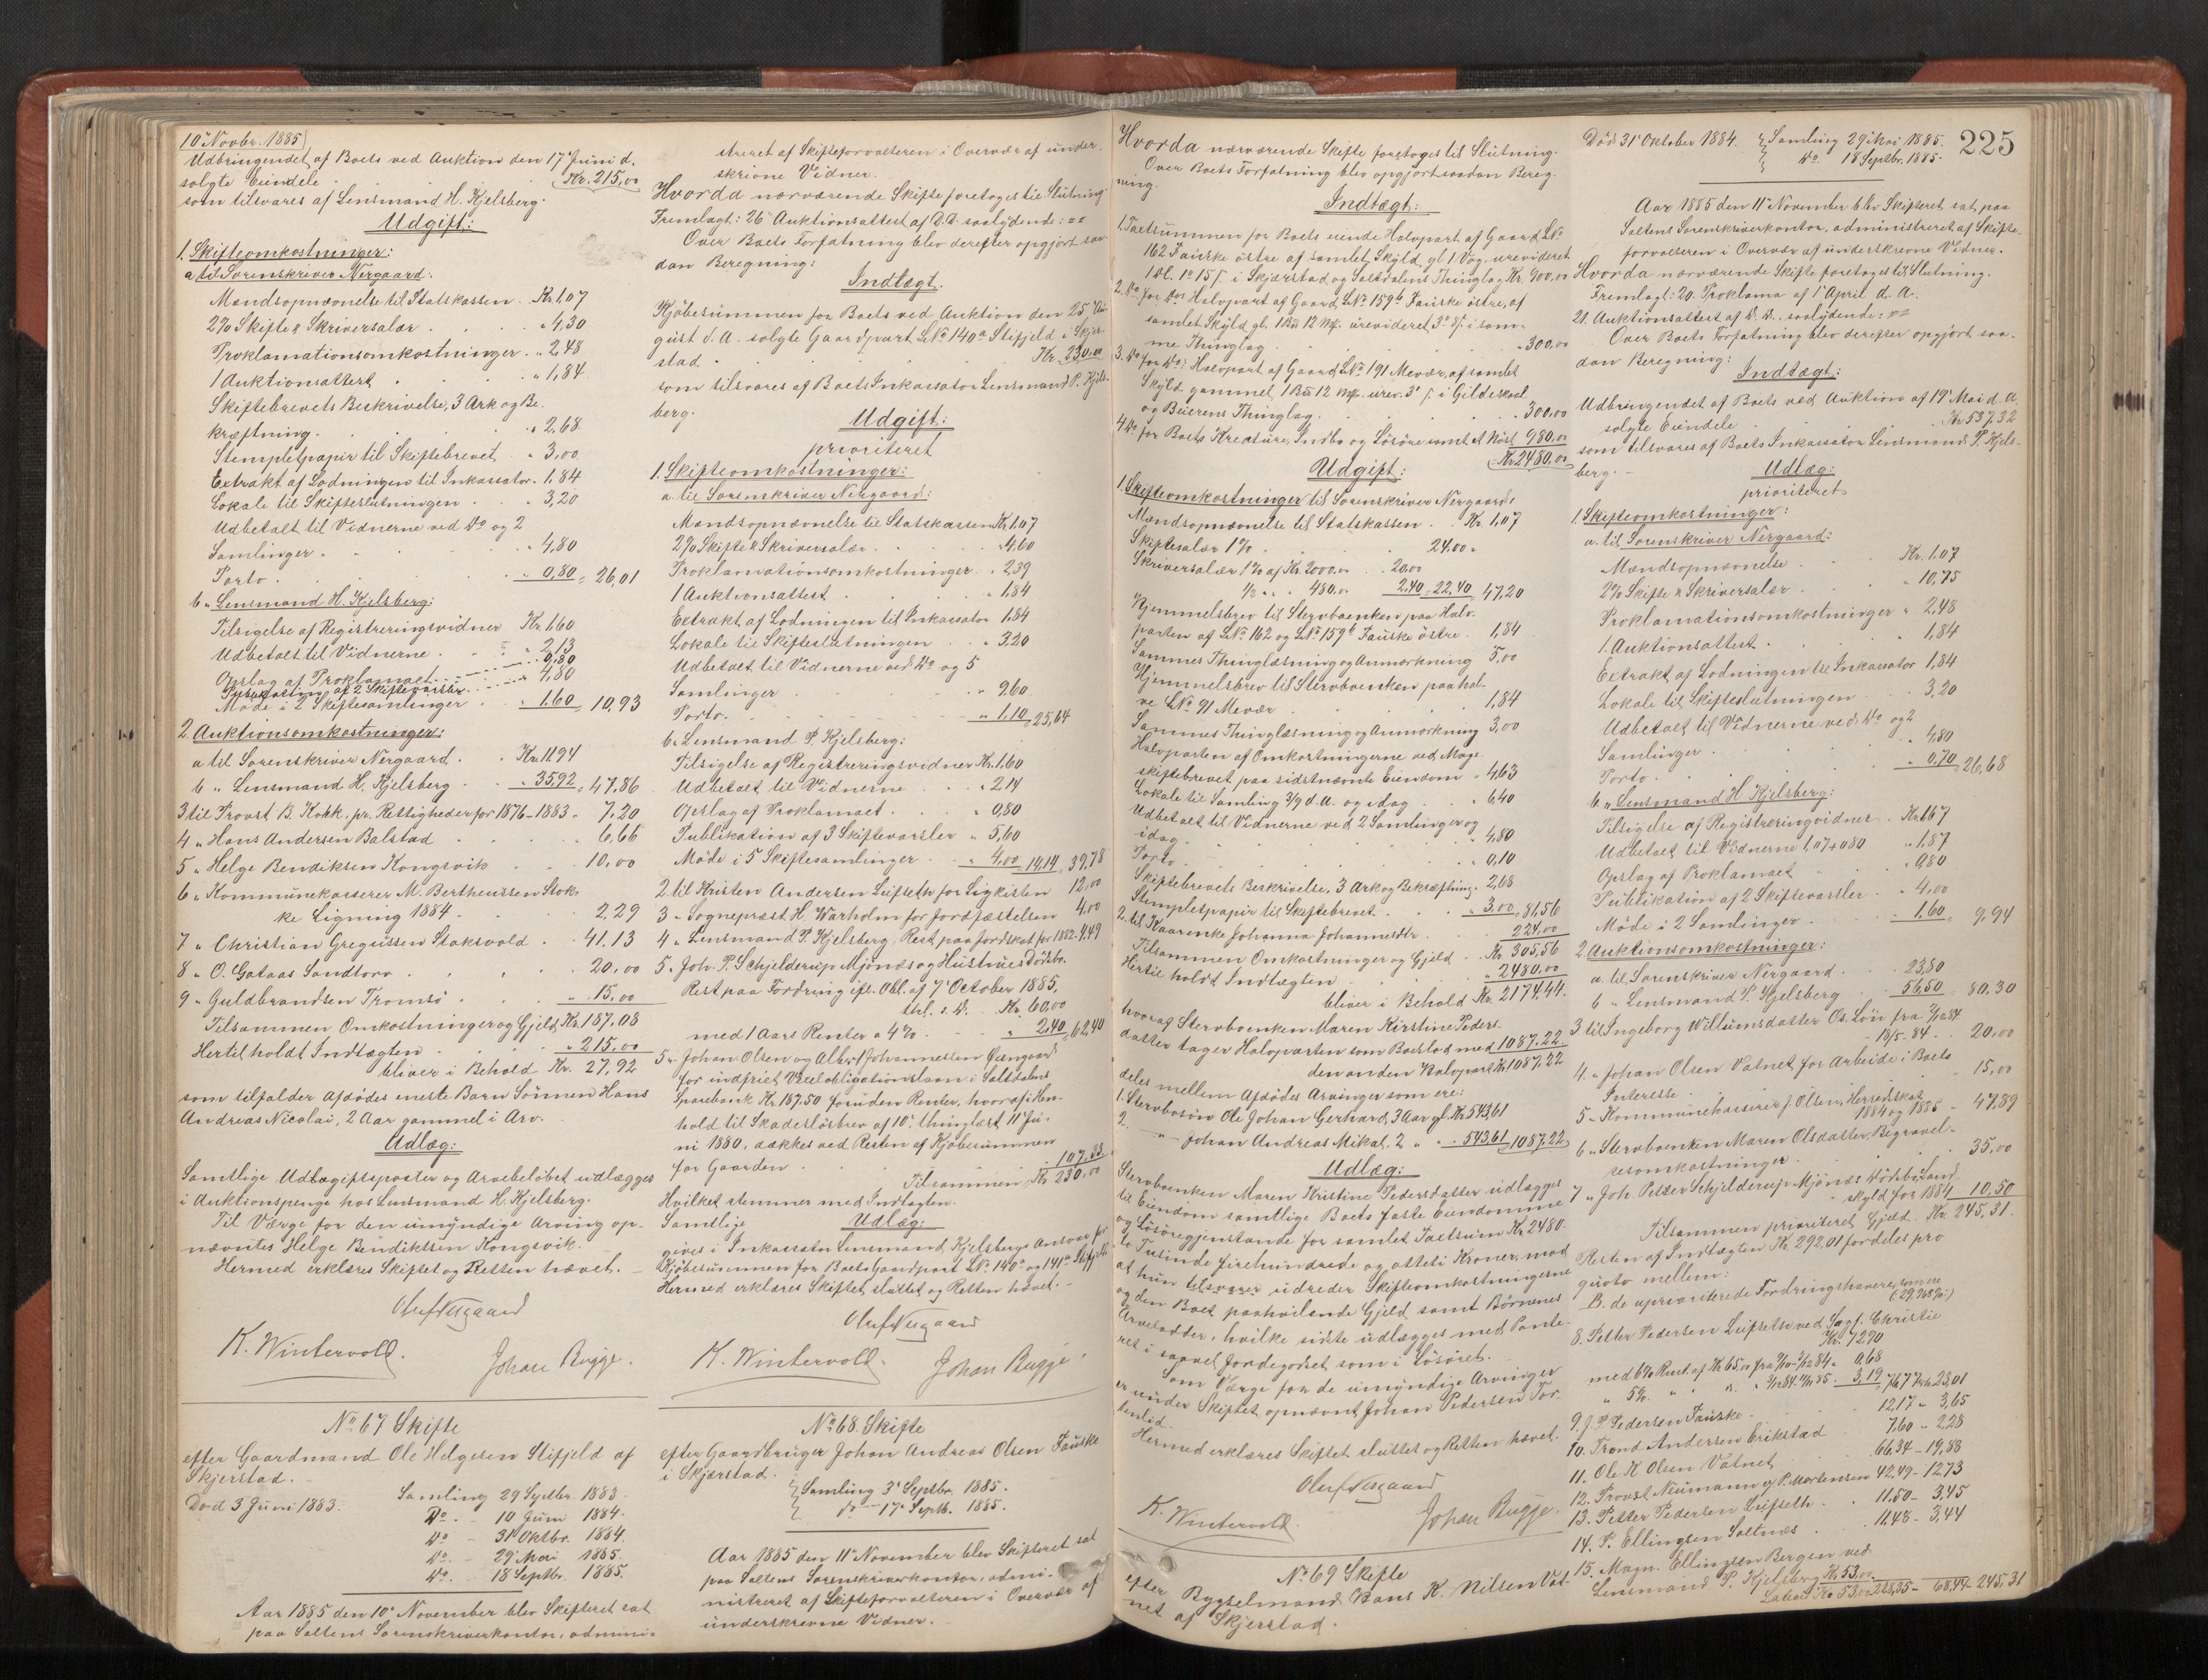 10 Novbr. 1885
Udbringendet af Boets ved Auktion den 17 Juni d.
solgte Eiendele Kr. 215,00
som tilsvares af Lensmand H. Kjelsberg.
Udgift:
1. Skifteomkostninger:
a til Sorenskriver Nergaard:
Mandsopnævnelse til Statskassen. Kr. 1,07
2% Skifte & Skriversalær . . " 4,30
Proklamationsomkostninger . " 2,48
1 Auktionsattest . . " 1,84
Skiftebrevets Beskrivelse, 3 Ark og Be-
kræftning. . . " 2,68
Stemplet papir til Skiftebrevet . " 3,00
Extrakt af Lodningen til Inkassator . 1,84
Lokale til Skifteslutningen . . " 3,20
Udbetalt til Vidnerne ved Do og 2
Samlinger . . . " 4,80
Porto . . . " 0,80 = 26,01
b " Lensmand H. Kjelsberg:
Tilsigelse af Registreringsvidner Kr. 1,60
Udbetalt til Vidnerne . . " 2,13
Opslag af Proklamaet . . " 0,80
Publikation af 2 Skiftevarsler . . " 4,80
Møde i 2 Skiftesamlinger . " 1,60 = 10,93
2. Auktionsomkostninger:
a til Sorenskriver Nergaard . . Kr. 11,94
b " Lensmand H. Kjelsberg . . " 35,92 = 47,86
3 til Provst B. Kokk. pr. Rettigheder for 1876-1883 . 7,20
4 " Hans Andersen Balstad . . " 6,66
5 " Helge Bendiksen Kongsvik . . " 10,00
6 " Kommunekasserer M. Bertheussen Stok-
ke Ligning 1884 . . . " 2,29
7 " Christian Gregussen Stoksvold . . 41,13
8 " O. Gataas Sandtorv . . . " 20,00
9 " Guldbrandsen Tromsö . . " 15,00
Tilsammen Omkostninger og Gjeld Kr. 187,08
Hertil holdt Indtægten . . " 215,00
bliver i Behold Kr. 27,92
som tilfalder Afdödes eneste Barn Sönnen Hans
Andreas Nicolai, 2 Aar gammel i Arv.
Udlæg:
Samtlige Udtægtsposter og Arvebeløbet udlægges
i Auktionspenge hos Lensmand H. Kjelsberg.
Til Værge for den umyndige Arving op-
nævntes Helge Bendiktsen Kongsvik.
Hermed erklæres Skiftet og Retten hævet. -
Oluf Nergaard
K. Wintervold. Johan Bugge.
No 67 Skifte
efter Gaardmand Ole Helgesen Stifjeld af
Skjerstad. -
Död 3 Juni 1883.
Samling 29 Septbr. 1883
Do. - 10 Juni 1884.
do - 31 Oktbr. 1884.
do. - 29 Mai 1885.
do. - 18 Septbr. 1885.
Aar 1885 den 10 November blev Skifteret sat
paa Saltens Sorenskriverkontor, admini-
streret af Skifteforvalteren i Overvær af under-
skrevne Vidner.
Hvorda nærværende Skifte foretoges til Slutning
Fremlagt: 26 Auktionsattest af D.D. saalydende: ¤¤
Over Boets Forfatning blev derefter opgjört saa-
dan Beregning:
Indtægt.
Kjöbesummen for Boets ved Auktion den 25 Au-
gust d. A. solgte Gaardpart LNo 140a Stifjeld i Skjer-
stad . . Kr. 230,00
som tilsvares af Boets Inkassator Lensmand P. Kjels-
berg.
Udgift:
prioriteret
1. Skifteomkostninger:
a. til Sorenskriver Nergaard:
Mandsopnævnelse til Statskassen Kr. 1,07
2% Skifte & Skriversalær . . " 4,60
Proklamationsomkostninger . " 2,39
1 Auktionsattest . . " 1,84
Extrakt af Lodningen til Inkassator 1,84
Lokale til Skifteslutningen . " 3,20
Udbetalt til Vidnerne ved Do og 5
Samlinger . . " 9,60
Porto. . . " 1,10 = 25,64
b " Lensmand P. Kjelsberg:
Tilsigelse af Registreringsvidner Kr. 1,60
Udbetalt til Vidnerne . . " 2,14
Opslag af Proklamaet . " 0,80
Publikation af 3 Skiftevarsler . " 5,60
Møde i 5 Skiftesamlinger . " 4,00 14,14 = 39,78
2 til Kristen Andersen Leifseth for Ligkisten 12,00
3 " Sognepræst H. Warholm for Jordfæstelsen 4,00
4 " Lensmand P. Kjelsberg, Rest paa Jordskat for 1882. 4,49
5 " Joh. P. Schjelderup Mjönæs og Hustrues Dödsbo.
Rest paa Fordring ifl. Obl. af 7 October 1885.
thl. s. D. Kr. 60,00
med 1 Aars Renter a 4% . " 2,40 = 62,40
5 " Johan Olsen og Albert Johannessen Øengaard
for indfriet Vexelobligationslaan i Saltdalens
Sparebank Kr. 187,50 foruden Renter, hvoraf i Hen-
hold til Skadeslösbrev af 10, thinglæst 11 Ju-
ni 1880, dækkes ved Resten af Kjöbesummen
for Gaarden . . . 107,33
Tilsammen Kr. 230,00
Hvilket stemmer med Indtægten.
Samtlige Udlæg:
gives i Inkassator Lensmand Kjelsbergs Ansvar for
Kjöbesummen for Boets Gaardpart LNo 140a og 141a Stifjeld
Hermed erklæres Skiftet sluttet og Retten hævet. -
Oluf Nergaard
K. Wintervold. Johan Bugge.
No 68. Skifte
efter Gaardbruger Johan Andreas Olsen Fauske
i Skjærstad.
Samling 3 Septbr. 1885.
do 17 Septb. 1885.
Aar 1885 den 11 November blev Skifteret sat
paa Saltens Sorenskriverkontor, admi-
nistreret af Skifteforvalteren i Overvær af
underskrevne Vidner. -
Hvorda nærværende Skifte foretoges til Slutning.
Over Boets Forfatning blev opgjört saadan Bereg-
ning.
Indtægt:
1. Taxtsummen for Boets eiende Halvpart af Gaard LNo
162 Fauske östre af samlet Skyld gl 1 Vog, urevideret
1 Dl. 1 o 15 s. i Skjærstad og Saltdalens Thinglag Kr. 900,00
2. Do for do Halvpart af Gaard LNo 159b Fauske östre, af
samlet Skyld gl. 1 Bu 12 Mk. urevideret 3 o s. i sam-
me Thinglag . . " 300,00
3. Do for Do: Halvpart af Gaard LNo 191 Mevær, af samlet
Skyld gammel 1 Bu 12 Mk. urev. 3 s. i Gildeskaal
og Beierens Thinglag . . " 300,00
4 Do for Boets Kreature, Indbo og Lösöre samt et Nöst 980,00
Kr. 2480,00
Udgift:
1. Skifteomkostninger til Sorenskriver Nergaard:
Mandsopnævnelse til Statskassen . . Kr. 1,07
Skiftesalær 1% . . 24,00.
Skriversalær 1% af Kr. 2000,00 . 20,00
½ " " " 480,00 2,40 22,40 47,20
Hjemmelsbrev til Stervboenken paa Halv-
parten af LNo 162 og LNo 159b Fauske östre . 1,84
Sammes Thinglæsning og Anmærkning 5,00
Hjemmelsbrev til Stervboenken paa hal-
ve LNo 91 Mevær . . 1,84
Sammes Thinglæsning og Anmærkning 3,00
Halvparten af Omkostningerne ved Mage-
skiftebrevet paa sidstnævnte Eiendom . 4,63
Lokale til Samling 3/9 d. A. og idag . " 6,40
Udbetalt til Vidnerne ved 2 Samlinger og
idag . . " 4,80
Porto . . " 0,10
Skiftebrevets Beskrivelse, 3 Ark og Bekræftning. 2,68
Stempletpapir til Skiftebrevet . . " 3,00 = 81,56
2. til Kaarenke Johanna Johannesdtr. . 224,00
Tilsammen Omkostninger og Gjeld . . Kr 305,56
Hertil holdt Indtægten . " 2480,00
bliver i Behold Kr. 2174,44.
hvoraf Stervboenken Maren Kirstine Peders-
datter tager Halvparten som Boeslod med 1087,22
den anden Halvpart Kr. 1087,22
deles mellem Afdödes Arvinger som ere:
1. Stervbosön Ole Johan Gerhard, 3 Aar gl. Kr. 543,61
2. " - Johan Andreas Mikal, 2 " " 543,61 1087,22
Udlæg:
Stervboenken Maren Kristine Pedersdatter udlægges
til Eiendom samtlige Boets faste Eiendomme
og Lösöregjenstande for samlet Taxtsum Kr. 2480.
to Tusinde firehundrede og otteti Kroner, mod
at hun tilsvarer udreder Skifteomkostningerne
og den Boet paahvilende Gjeld samt Börnenes
Arvelodder, hvilke sidste udlægges med Pante-
ret i saavel Jordegodset som i Lösöret.
Som Værge for de umyndige Arvinger
er under Skiftet opnævnt Johan Pedersen Tor-
tenlid.
Hermed erklæres Skiftet sluttet og Retten hævet.
Oluf Nergaard
K. Wintervold. Johan Bugge.
No 69 Skifte
efter Bygselmand Hans K. Nilsen Vat-
net af Skjerstad.
225
Död 31 Oktober 1884. Samling 29 Mai 1885.
Do 18 Septbr. 1885.
Aar 1885 den 11 November blev Skifteret sat paa
Saltens Sorenskriverkontor, administreret af Skifte-
forvalteren i Overvær af underskrevne Vidner.
Hvorda nærværende Skifte foretoges til Slutning.
Fremlagt: 20. Proklama af 1 April d. A.
21. Auktionsattest af D. D. saalydende: ¤¤
Over Boets Forfatning blev derefter opgjört saa-
dan Beregning:
Indtægt:
Udbringendet af Boets ved Auktion af 19 Mai d. A.
solgte Eiendele . . Kr 537,32
som tilsvares af Boets Inkassator Lensmand P. Kjels-
berg. -
Udlæg:
prioriteret
1. Skifteomkostninger:
a. til Sorenskriver Nergaard:
Mandsopnævnelse . . Kr. 1,07
2% Skifte & Skriversalær . . " 10,75
Proklamationsomkostninger . " 2,48
1. Auktionsattest . . " 1,84
Extrakt af Lodningen til Inkassator 1,84
Lokale til Skifteslutningen . . 3,20
Udbetalt til Vidnerne ved Do og 2
Samlinger . . " 4,80
Porto . . " 0,70 = 26,68
b. " Lensmand H Kjelsberg:
Tilsigelse af Registreringvidner . Kr. 1,67
Udbetalt til Vidnerne 1,07 + 0,80 " 1,87
Opslag af Proklamaet . " 0,80
Publikation af 2 Skiftevarsler . " 4,00
Møde i 2 Samlinger . . " 1,60 = 9,94
2. Auktionsomkostninger:
a. til Sorenskriver Nergaard . . 23,80
b " Lensmand P. Kjelsberg . 56,50 = 80,30
3 til Ingeborg Willumsdatter Os. Lön fra
- 18/5. 84. . . 20,00
4. " Johan Olsen Vatnet for Arbeide i Boets
Interesse . . " 15,00
5 - Kommunekasserer J. Olsen, Herredskat
1884 og 1885 . " 47,89
6 " Stervboenken Maren Olsdatter, Begravel-
sesomkostninger . . 35,00
7 " Joh Petter Schjelderup Mjönæs Dödsbo, Land-
skyld for 1884 10,50
Tilsammen prioriteret Gjeld . Kr. 245,31.
Resten af Indtægten Kr. 292,01 fordeles pro
quoto mellem:
B. de uprioriterede Fordringshavere, som ere
8. Petter Pedersen Leifseth ved Sagf. Christie
Kr. 72,90
med 6% Rent. af Kr 65,00 fra 84. 0,68
" 5% " 3,19 76,77 Kr. 23,01
9. J. P. Pedersen Fauske . . 12,17 " 3,65
10. Trond Andersen Erikstad . 7,60 .. 2,28
11. Ole K Olsen Vatnet . 66,34 - 19,88
12. Provst Neumann v/ P. Mortensen 42,49 - 12,73
13. Petter Pedersen Leifseth . . 11,50 - 3,45
14. P. Ellingsen Saltnæs . . 11,48 - 3,44
15. Magn. Ellingsen Bergen ved
Lensmand P. Kjelsberg Kr. 53,00
Lateris Kr. 53,00 228,35 - 68,44 245,31